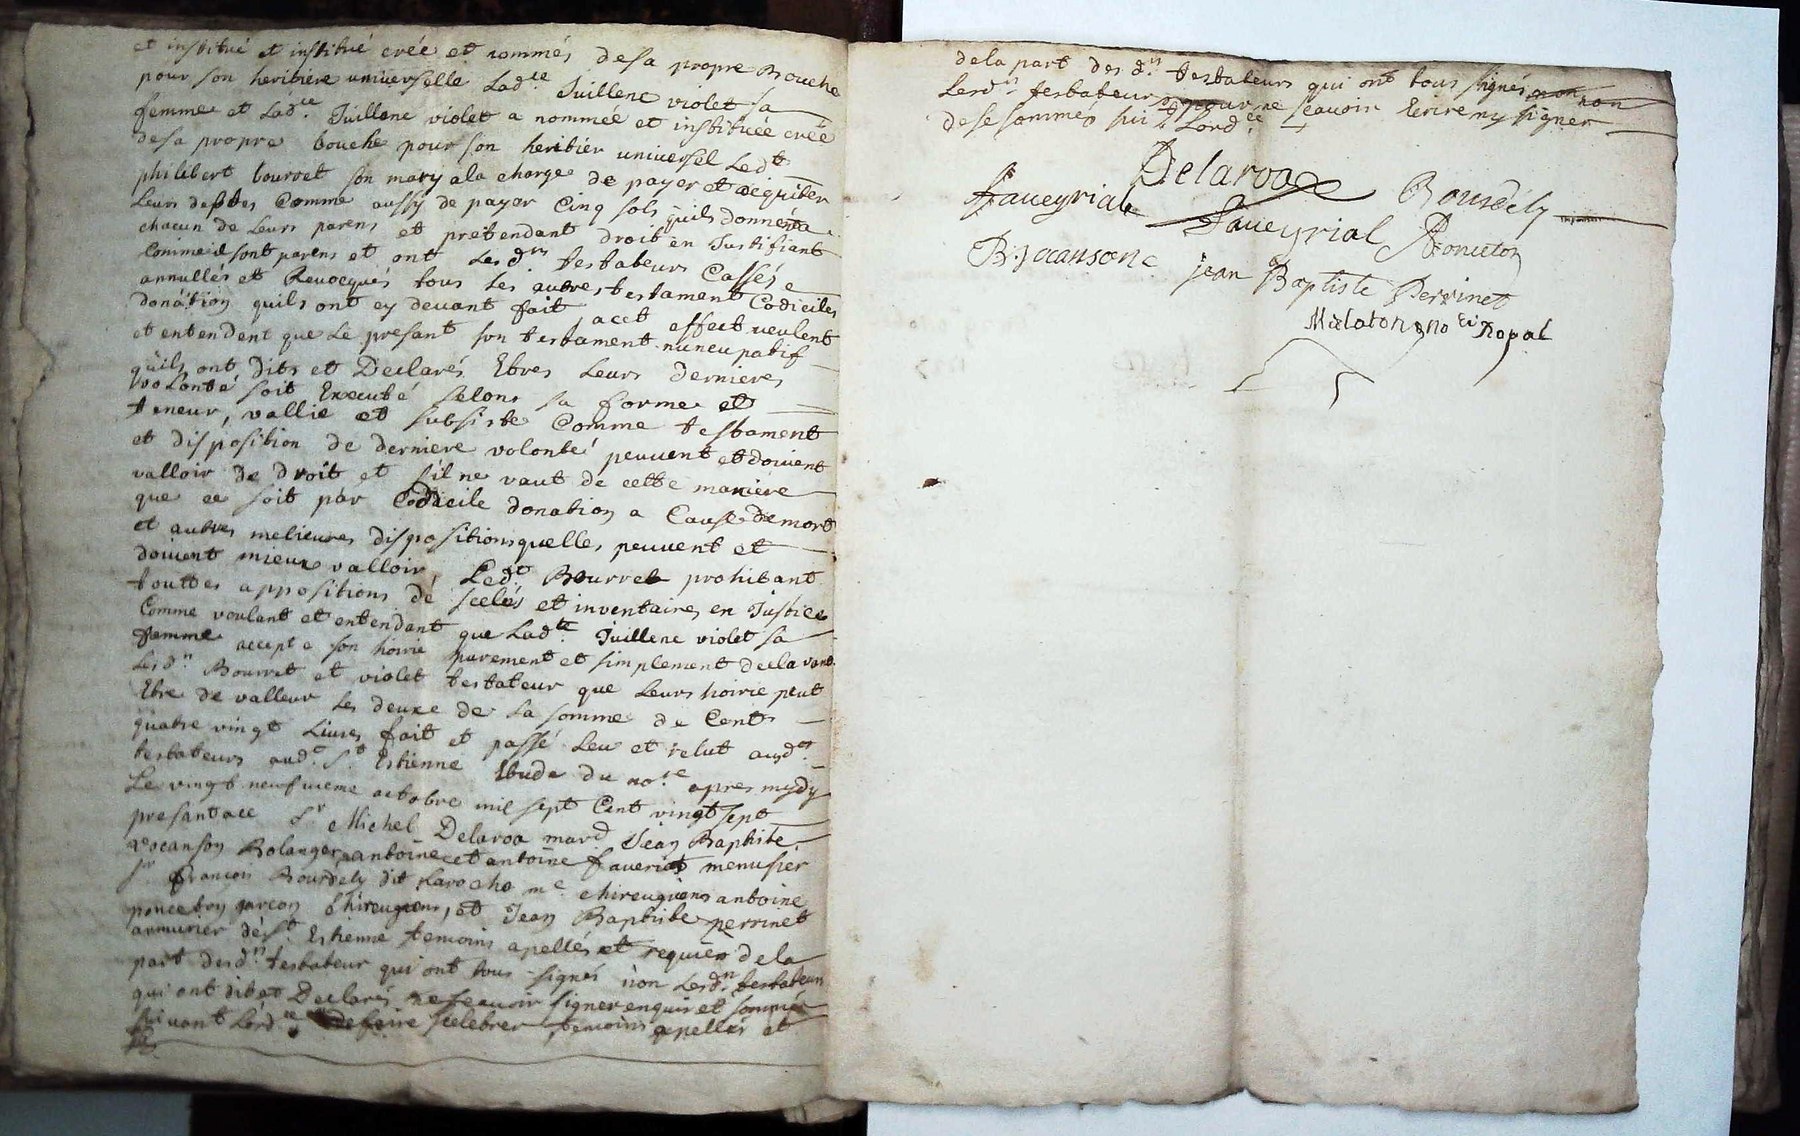 et institué et institué créé et nommés desa propre Bouche
pour son heritiere universelle Ladce Juillene violet sa
femme et Ladce Juillene violet a nommée et instituée créé
desa propre bouche pour son heritier universel Ledt
philibert bourret son mary ala charge de payer et acquiter
Leurs debtes Comme aussy de payer Cinq sols quils donnent a
chacun de Leurs parens et pretendant droit en Justifiant
Comme il sont parens et ont Lesdrs testateurs Cassés
annullés et Revocqués tous les autres testament Codiciles
donation quils ont cy devant fait acet effect veulent
et entendent que Le presant son testament nuncupatif
quils ont dits et Declarés Etres Leurs dernieres
volonté soit Executé selons sa forme et
teneur, vallie et subsiste Comme testament
et disposition de derniere volonté peuvent et doivent
valloir de droit et sil ne vaut de cette maniere
que ce soit par Codicile donation a Cause de mort
et autres melieures dispositions quelles peuvent et
doivent mieux valloir, Ledt Bourret prohibant
touttes appositions de scelés et inventaires en Justice
Comme voulant et entendant que Ladte Juillene violet sa
femme accepte son hoirie purement et simplement declarant
Lesdn Bourret et violet testateur que Leurs hoirie peut
Etre de valleur les deuxe de La somme de Cent
quatre vingt Livres fait et passé Leu et relut ausdts
testateurs audt St Estienne Etude du nore apres mydy
Le vingt neufvieme octobre mil sept Cent vingt sept
presant ace Sr Michel Delaroa mard Jean Baptiste
Bolanger antoine et antoine faveriat menusier
sr francois Bourdely dit Laroche me chireugiens antoine
poncetton garcon Chireugiens, et Jean Baptiste perrinet
armurier de St Estienne temoins apellés et requis dela
part desdn testateur qui ont tous signés non Lesdn testateurs
qui ont dit et Declarés ne scavoir signer enquis et sommés
suivant Lordce temoins apellés et
dela part des dn testateurs qui ont tous signés non
Lesdn testateur pour ne scavoir Ecrire ny signer
dese sommés sui Lordce
Delaroa
faveyrial Bourdely
faveyrial Poncetton
B. jocanson
jean Baptiste Perrinet
Royal